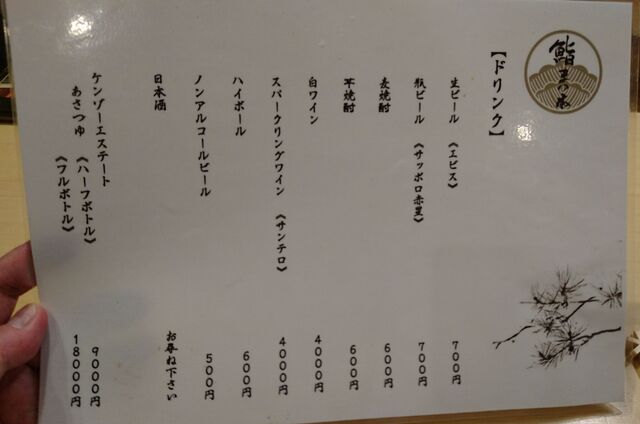 鮨
【ドリンク】
生ビール 《エビス》 700円
瓶ビール 《サッポロ赤星》 700円
麦焼酎 600円
芋焼酎 600円
白ワイン 4000円
スパークリングワイン 《サンテロ》 4000円
ハイボール 600円
ノンアルコールビール 500円
日本酒 お尋ね下さい
ケンゾーエステート
あさつゆ 《ハーフボトル》 9000円
《フルボトル》 18000円